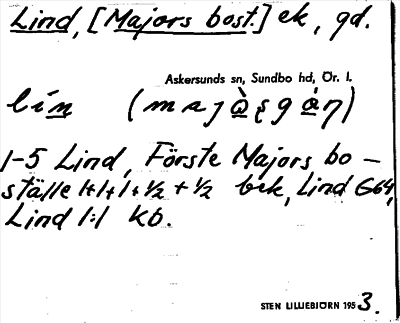 Lind, [Majors bost.] ek, gd.
Askersunds sn, Sundbo hd, Ör. l.
lín (
1-5 Lind, Förste Majors bo-
ställe 1+1+1+½+½ bek, Lind G64,
Lind 1:1 kb.
STEN LILLIEBJÖRN 1953.